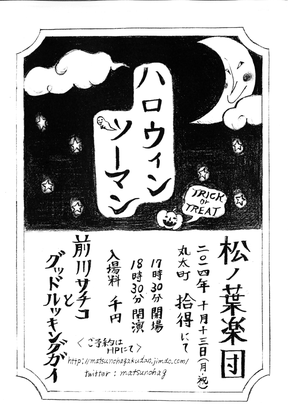 ハロウィン
ツーマン
TRICK
OR
TREAT
松ノ葉楽団
二〇一四年 十月十三日(月・祝)
丸太町 拾得にて
17時30分開場
18時30分開演
入場料 千円
前川サチコ
と
グッドルッキングガイ
〈ご予約は
HPにて〉
http://matsunohagakudan.jimdo.com/
twitter: matsunohag